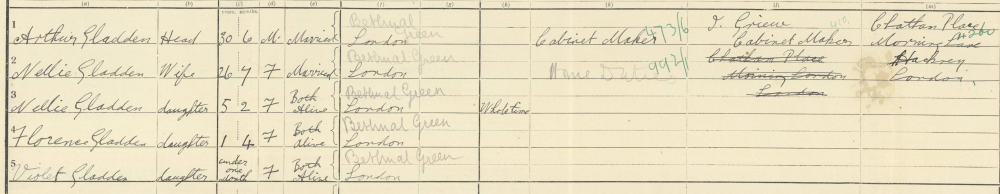 (a) (b) (c) (d) (e) (f) (g) (h) (k) (l) (m)
YEARS. MONTHS.
1 Arthur Gladden Head 30 6 M. Married Bethnal Green London Cabinet Maker 473/6 J. Grieu Cabinet Makers 410. Chatham Place Morning Lane Hackney London.
Chatham Place Morning London London
2 Nellie Gladden Wife 26 7 F Married Bethnal Green London Home Duties 992/1
3 Nellie Gladden daughter 5 2 F Both Alive Bethnal Green London Wholetime
4 Florence Gladden daughter 1 4 F Both Alive Bethnal Green London
5 Violet Gladden daughter under one month F Both Alive Bethnal Green London